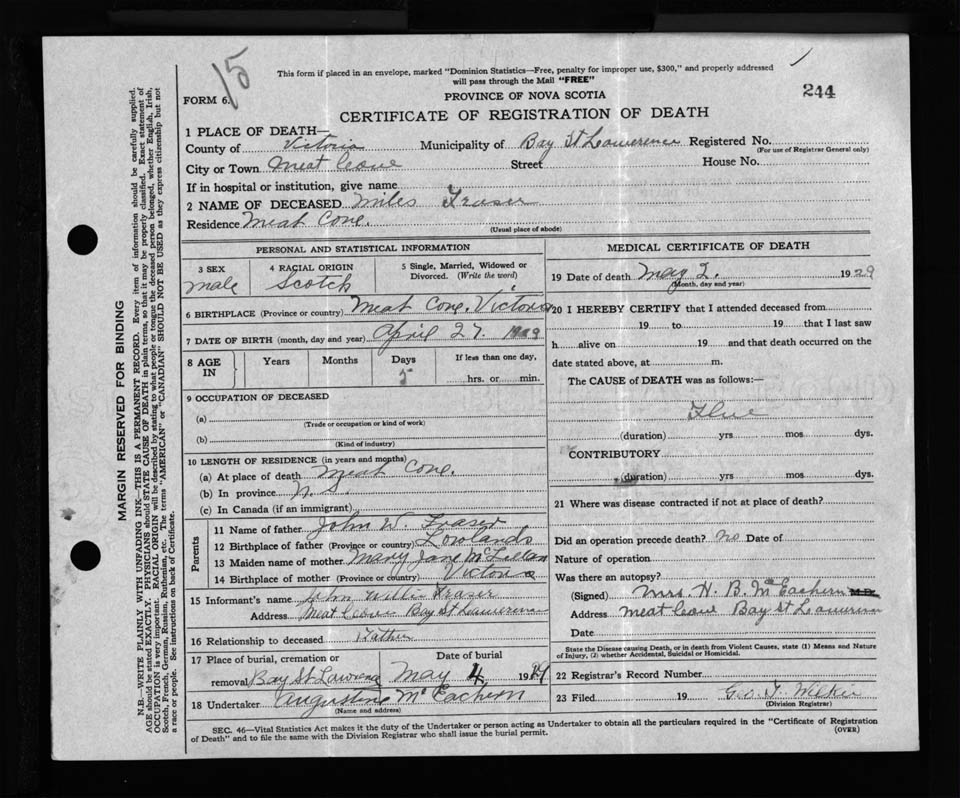 15
This form if placed in an envelope, marked "Dominion Statistics—Free, penalty for improper use, $300," and properly addressed
will pass through the Mail "FREE"
244
FORM 6.
PROVINCE OF NOVA SCOTIA
CERTIFICATE OF REGISTRATION OF DEATH
1 PLACE OF DEATH—
County of Victoria Municipality of Bay St Lawerence Registered No.
(For use of Registrar General only)
City or Town Meat Cove Street House No.
If in hospital or institution, give name
2 NAME OF DECEASED Miles Fraser
Residence Meat Cove.
(Usual place of abode)
PERSONAL AND STATISTICAL INFORMATION
3 SEX 4 RACIAL ORIGIN 5 Single, Married, Widowed or Divorced. (Write the word)
male Scotch
6 BIRTHPLACE (Province or country) Meat Cove. Victoria
7 DATE OF BIRTH (month, day and year) April 27. 1929
8 AGE IN Years Months Days If less than one day,
5 hrs. or min.
9 OCCUPATION OF DECEASED
(a)
(Trade or occupation or kind of work)
(b)
(Kind of industry)
10 LENGTH OF RESIDENCE (in years and months)
(a) At place of death Meat Cove.
(b) In province N. S.
(c) In Canada (if an immigrant)
Parents
11 Name of father John W. Fraser
12 Birthplace of father (Province or country) Lowlands
13 Maiden name of mother Mary Jane McLellan
14 Birthplace of mother (Province or country) Victoria
15 Informant's name John Fraser
Address Meat Cove Bay St Lawerence
16 Relationship to deceased Father
17 Place of burial, cremation or Date of burial
removal Bay St. Lawrence May 4, 1929
18 Undertaker Augustine McEachern
(Name and address)
MEDICAL CERTIFICATE OF DEATH
19 Date of death May 2. 1929
(Month, day and year)
20 I HEREBY CERTIFY that I attended deceased from
19 to 19 that I last saw
h alive on 19 and that death occurred on the
date stated above, at m.
The CAUSE of DEATH was as follows:—
Flue
(duration) yrs mos dys.
CONTRIBUTORY
(duration) yrs. mos. dys.
21 Where was disease contracted if not at place of death?
Did an operation precede death? no Date of
Nature of operation
Was there an autopsy?
(Signed) Mrs H. B. McEachern M.D.
Address Meat Cove Bay St Lawerence
Date
State the Disease causing Death, or in death from Violent Causes, state (1) Means and Nature
of Injury, (2) whether Accidental, Suicidal or Homicidal.
22 Registrar's Record Number
23 Filed 19 Geo. T. Wilkie
(Division Registrar)
SEC. 46—Vital Statistics Act makes it the duty of the Undertaker or person acting as Undertaker to obtain all the particulars required in the "Certificate of Registration
of Death" and to file the same with the Division Registrar who shall issue the burial permit.
(OVER)
MARGIN RESERVED FOR BINDING
N.B.—WRITE PLAINLY WITH UNFADING INK—THIS IS A PERMANENT RECORD. Every item of information should be carefully supplied.
AGE should be stated EXACTLY. PHYSICIANS should STATE CAUSE OF DEATH in plain terms, so that it may be properly classified. Exact statement of
OCCUPATION is very important. RACIAL ORIGIN will be described by stating to what people or tongue the deceased person belonged, whether English, Irish,
Scotch, French, German, Russian, Ruthenian, etc. The terms "AMERICAN" or "CANADIAN" SHOULD NOT BE USED as they express citizenship but not
a race or people. See instructions on back of Certificate.